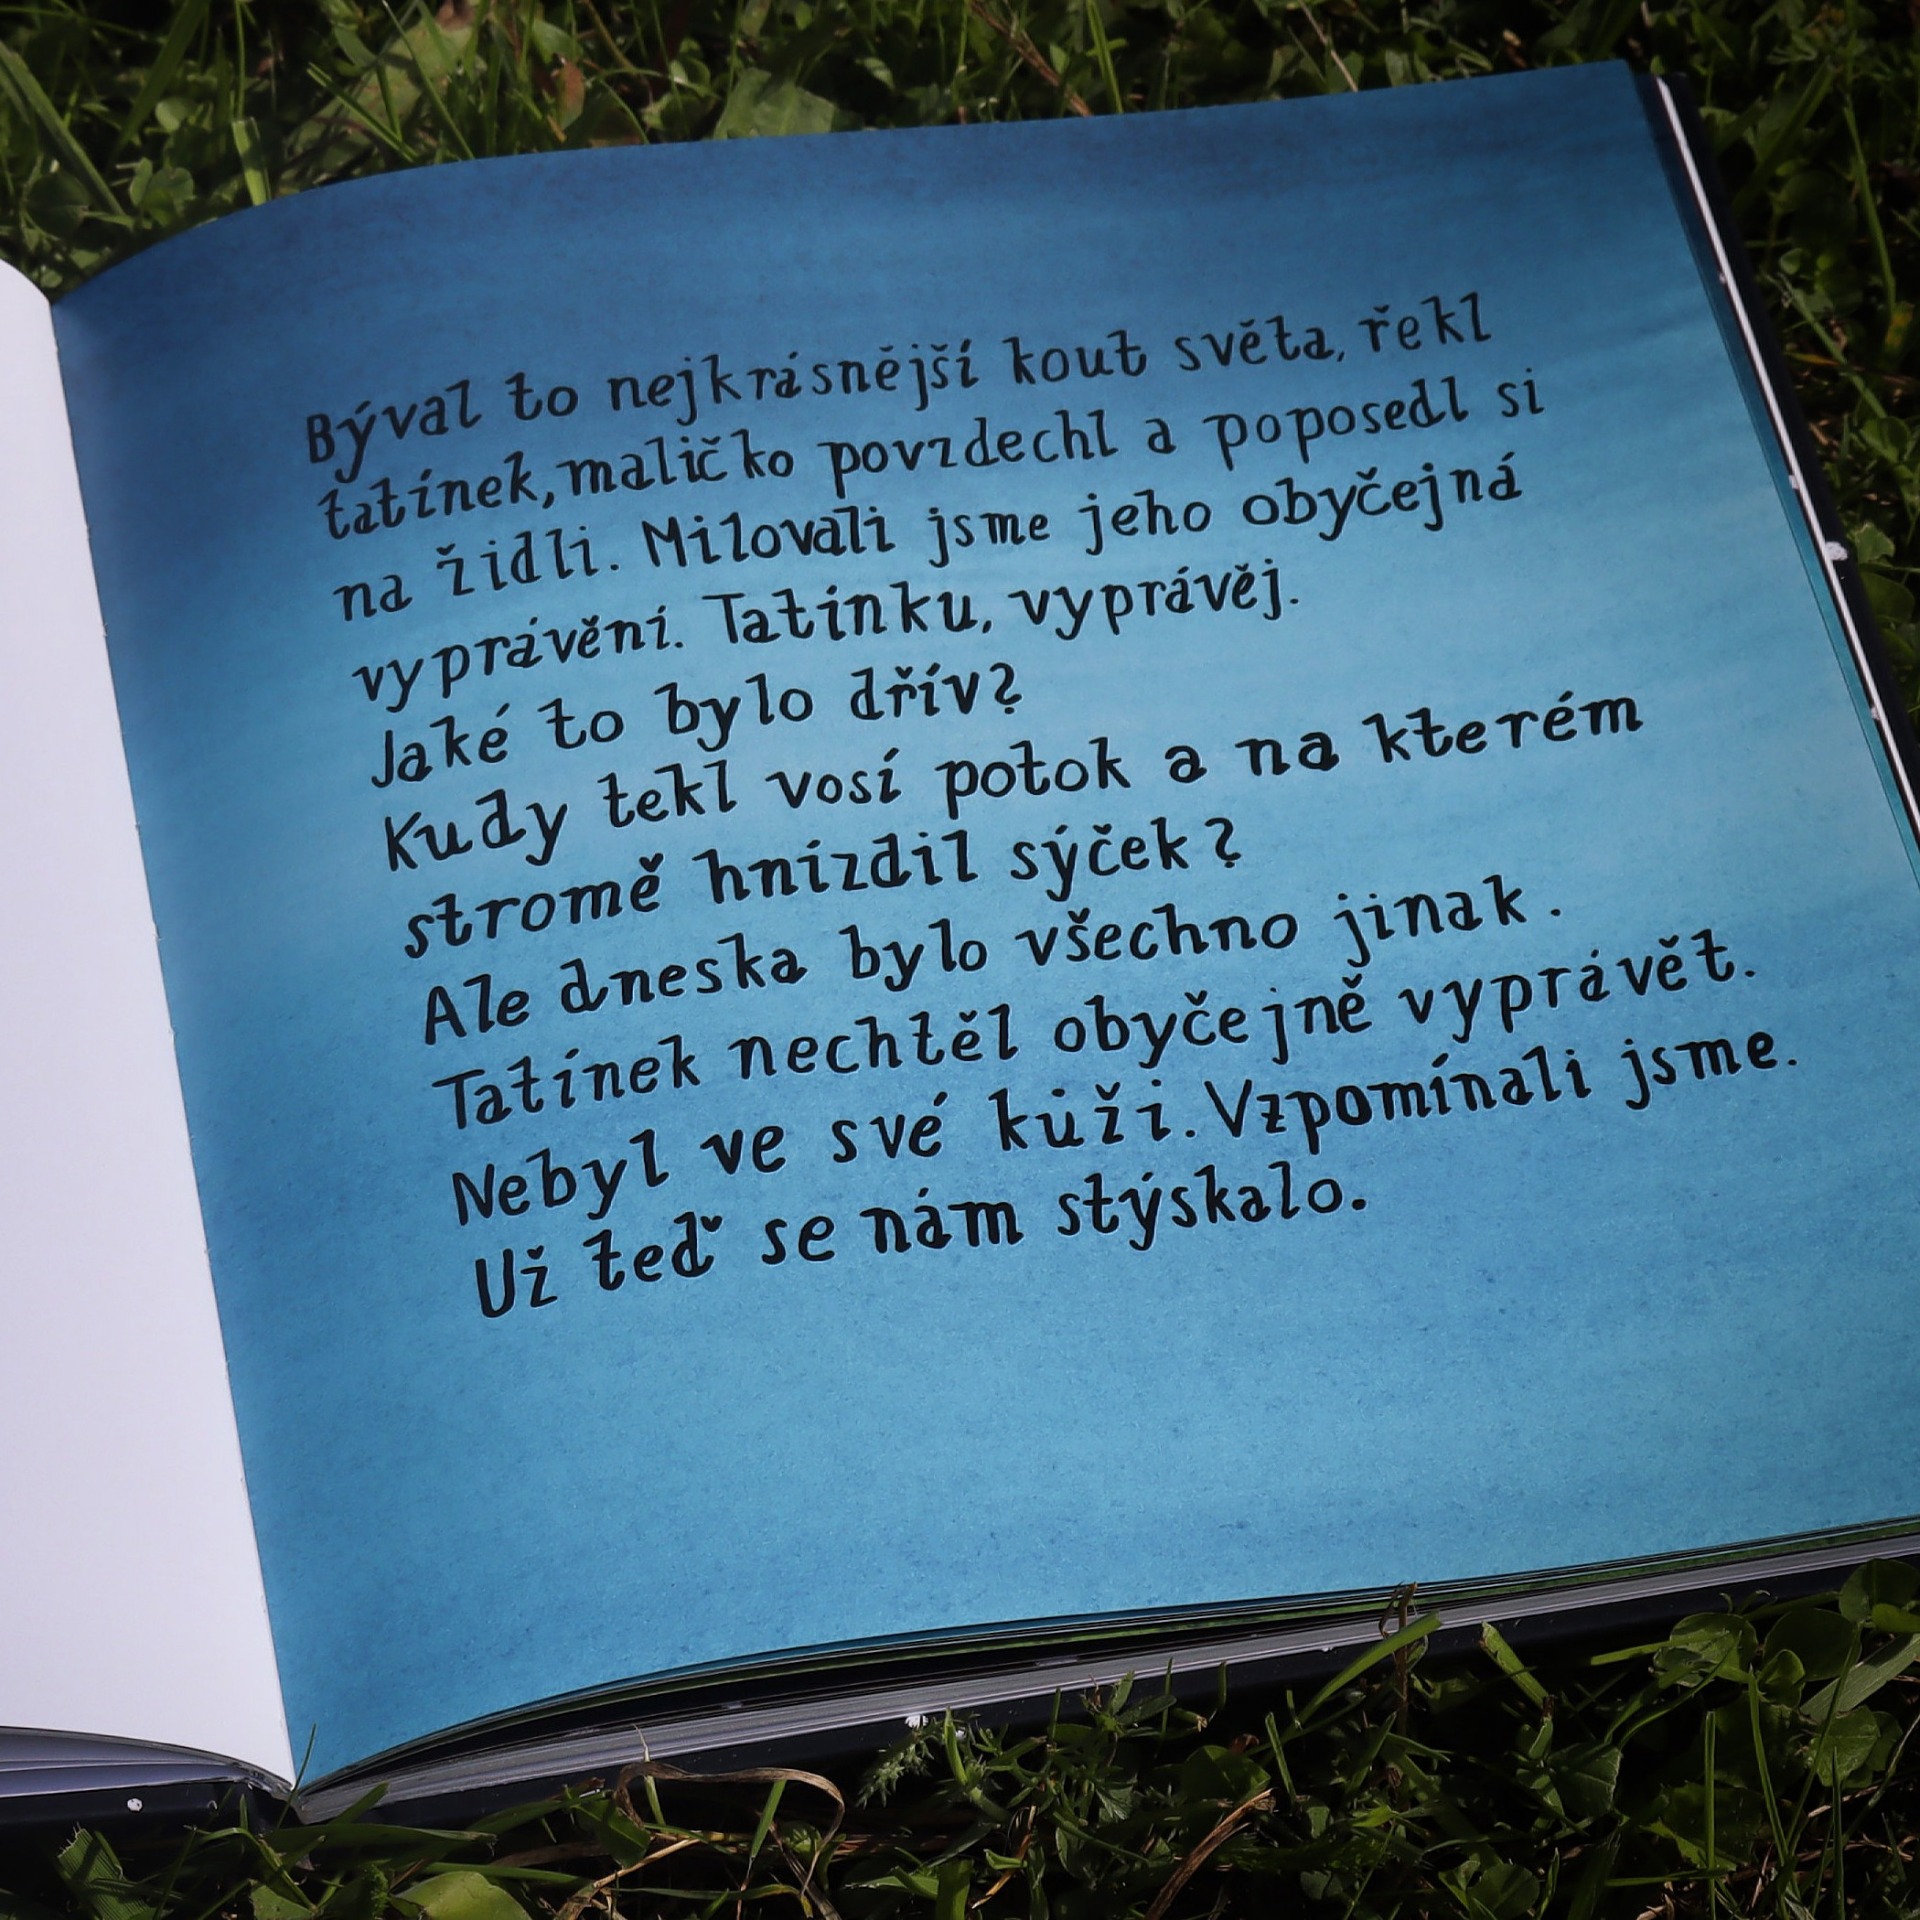 Býval to nejkrásnější kout světa, řekl
tatínek, maličko povzdechl a poposedl si
na židli. Milovali jsme jeho obyčejná
vyprávění. Tatínku, vyprávěj.
Jaké to bylo dřív?
Kudy tekl vosí potok a na kterém
stromě hnízdil sýček?
Ale dneska bylo všechno jinak.
Tatínek nechtěl obyčejně vyprávět.
Nebyl ve své kůži. Vzpomínali jsme.
Už teď se nám stýskalo.